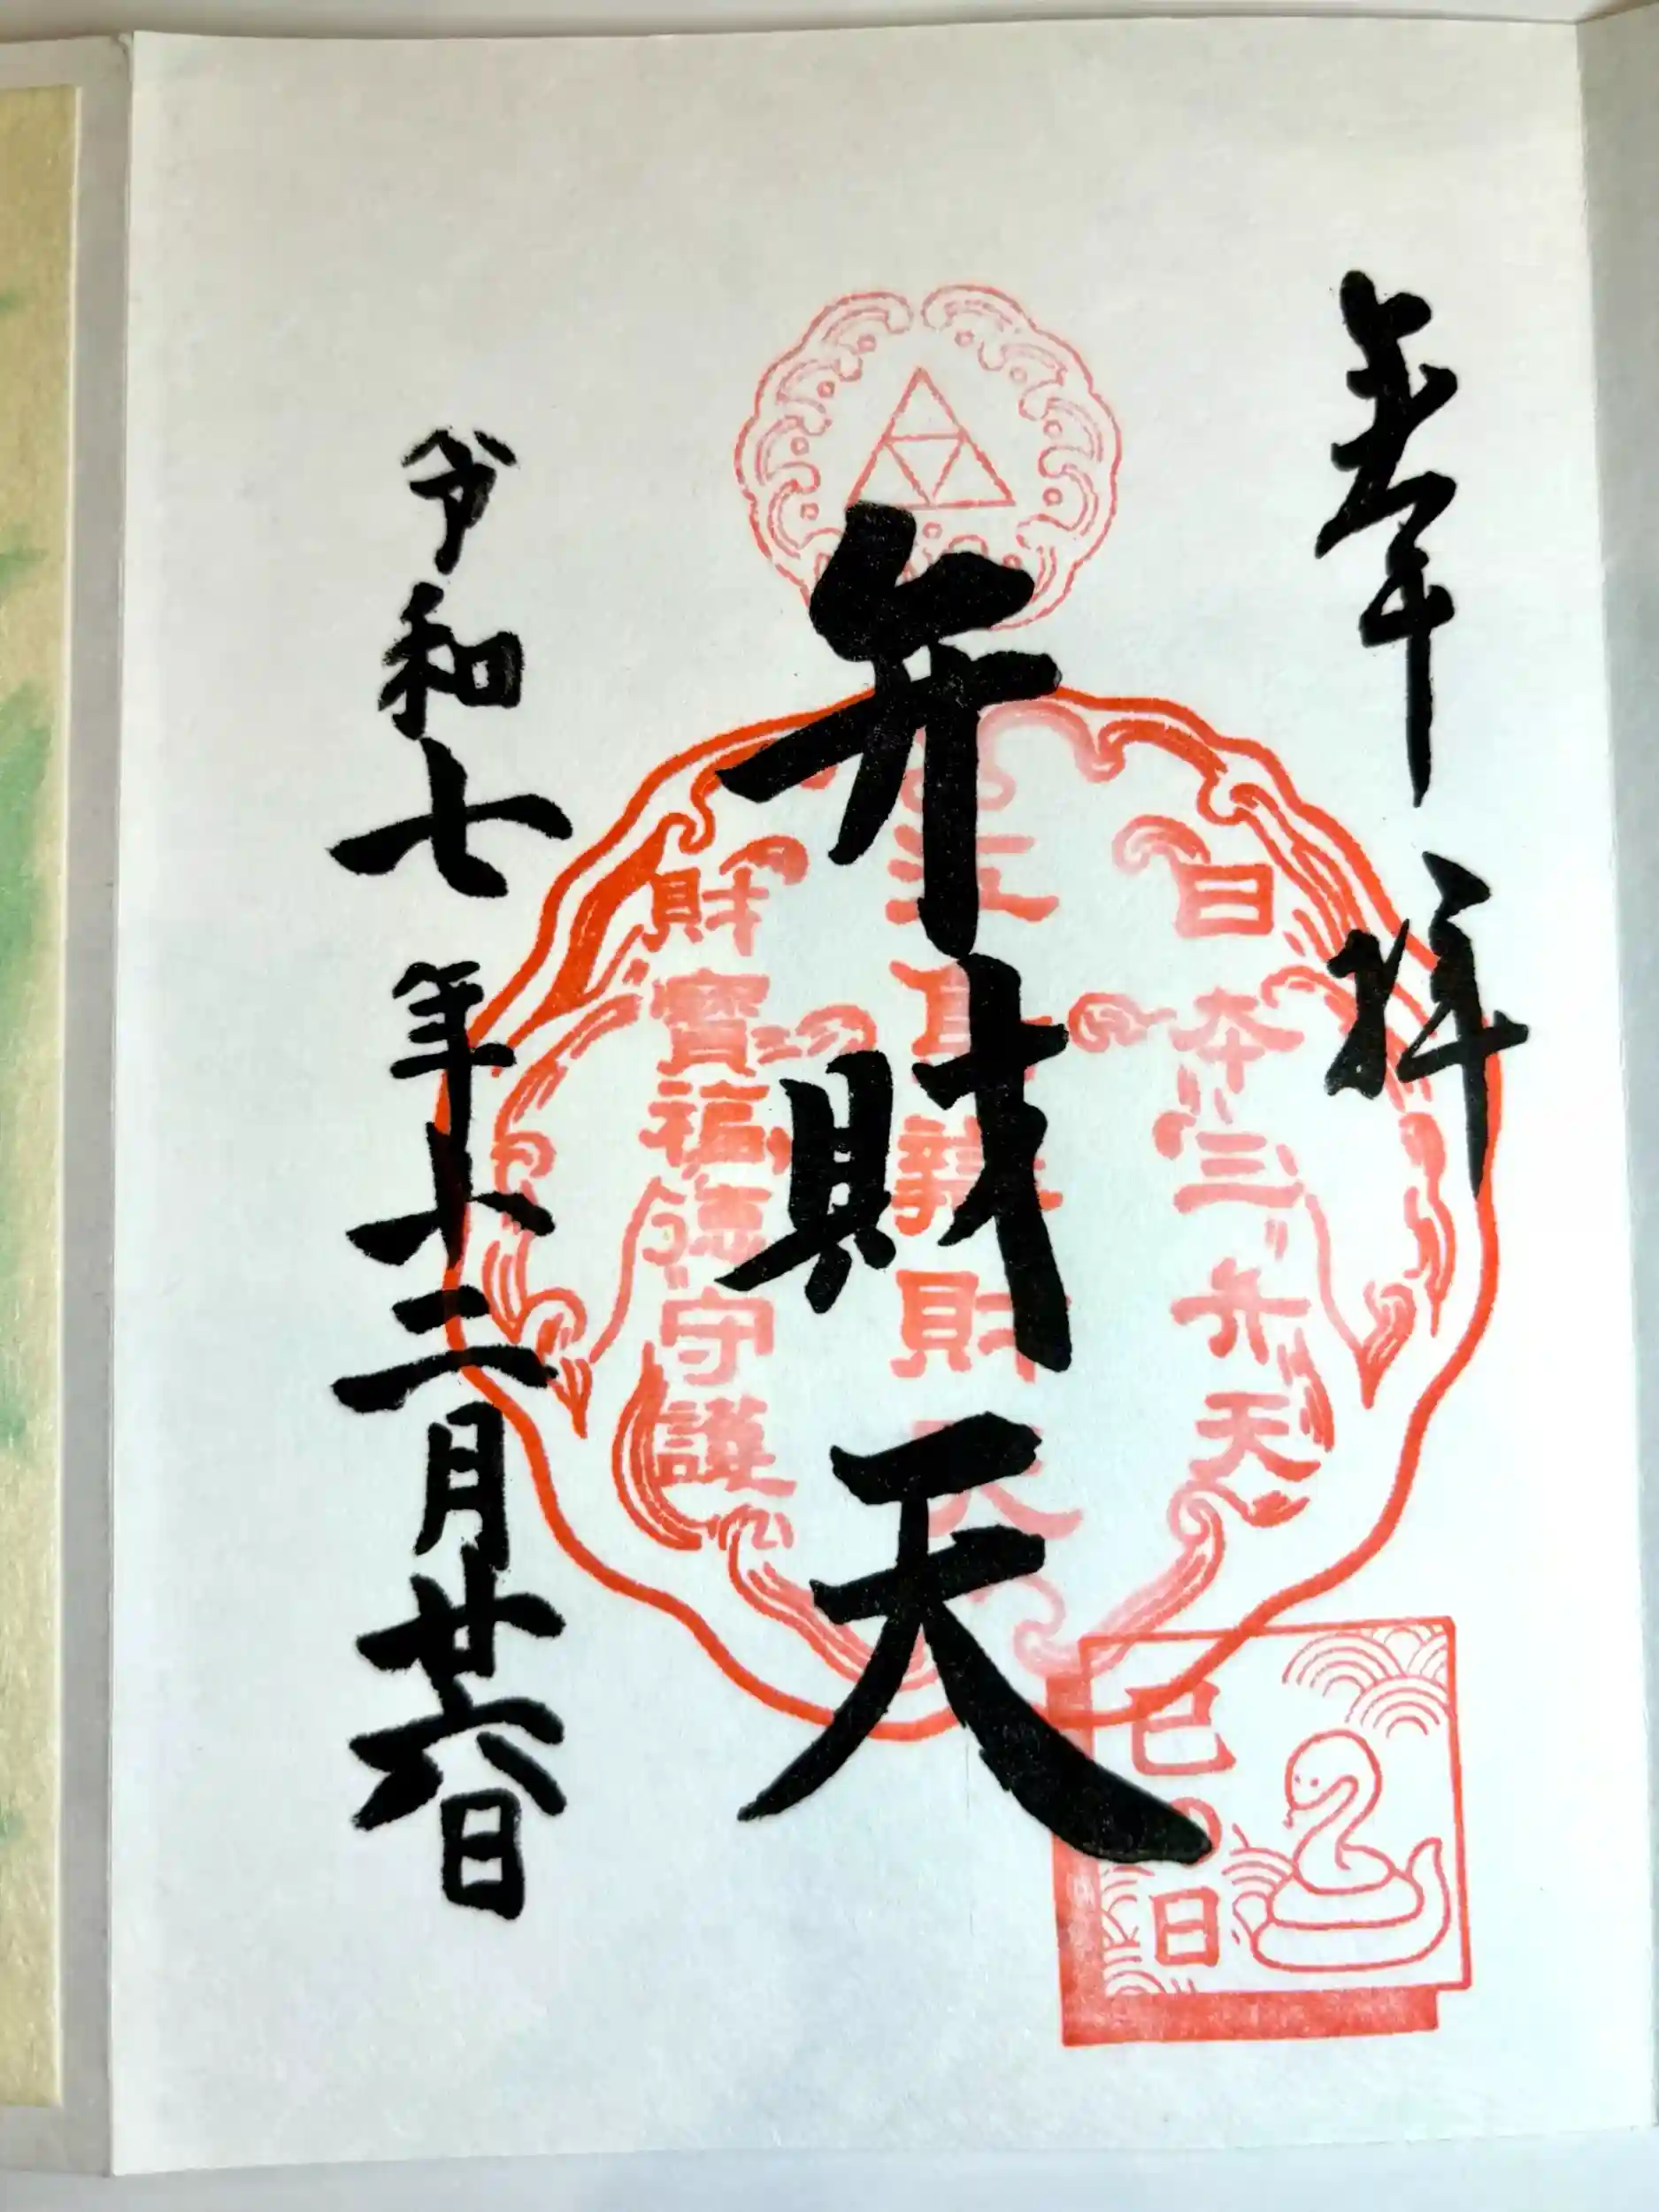 奉拝
弁財天
令和七年十二月廿六日
日本三弁天
財寶福徳守護
巳の日